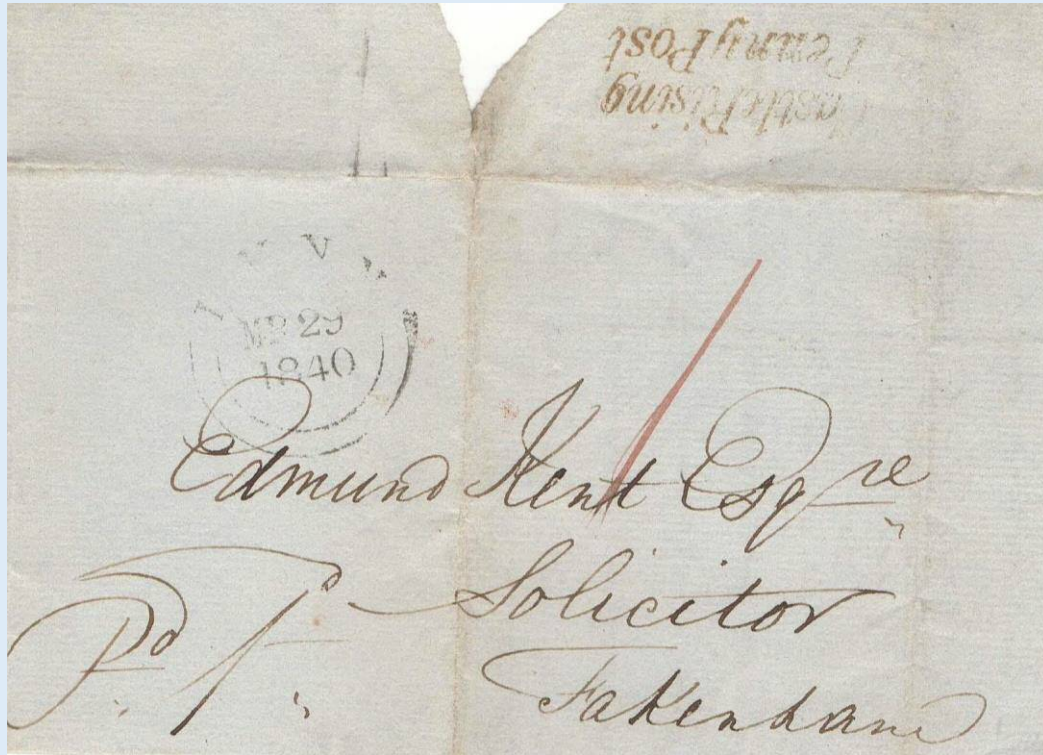 Castle Rising
Penny Post
MR 29
1840
Edmund Kent Esqre
Pd 1d Solicitor
Fakenham